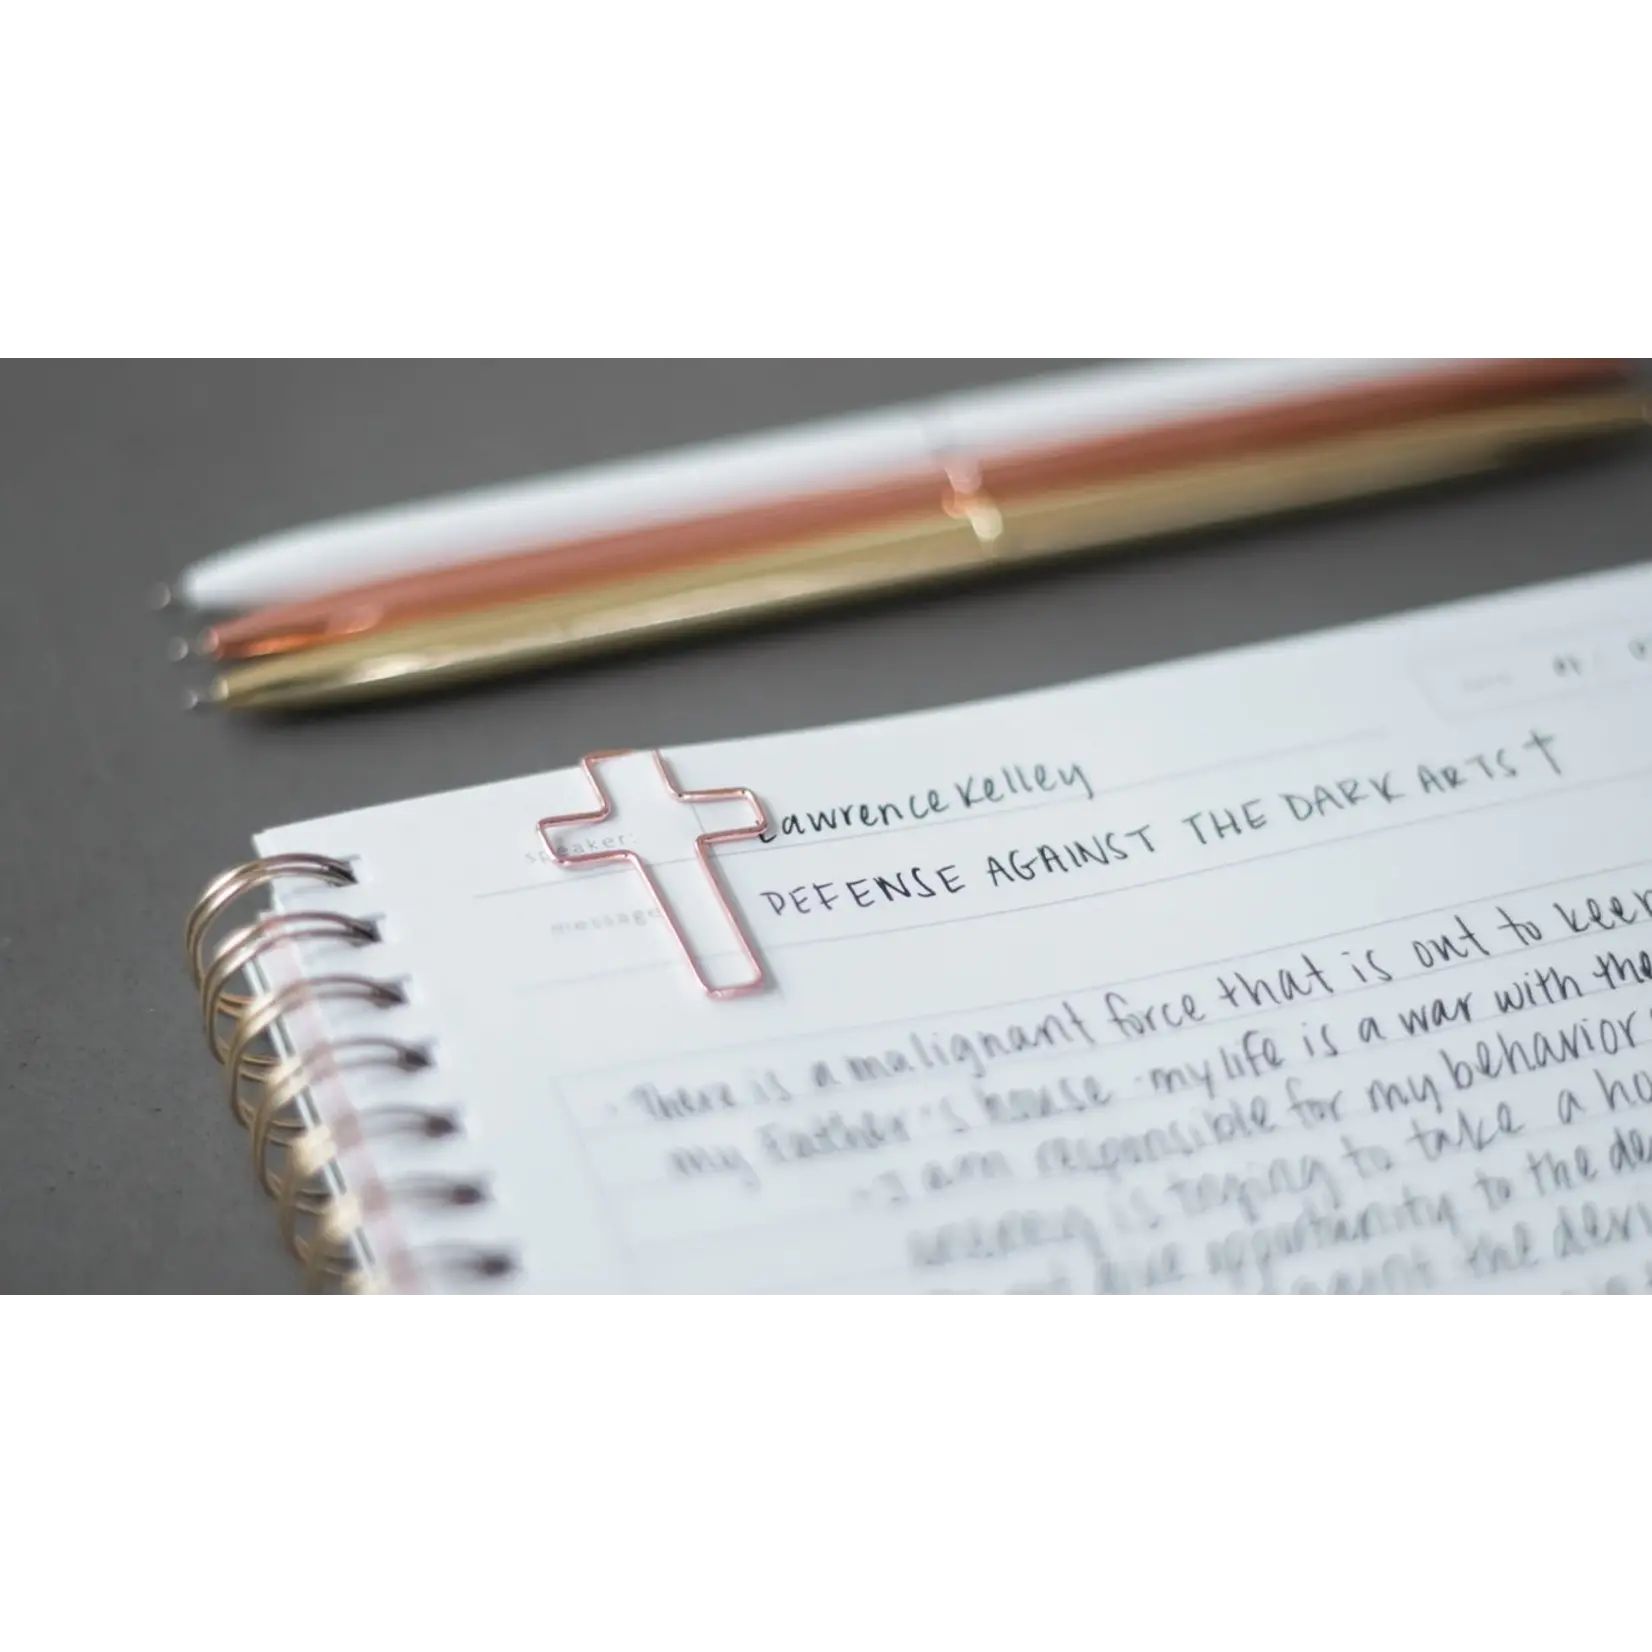 speaker: Lawrence Kelley
message DEFENSE AGAINST THE DARK ARTS †
• There is a malignant force that is out to keep
my Father's house • my life is a war with the
• I am responsible for my behavior
enemy is trying to take a
not give opportunity to the
against the